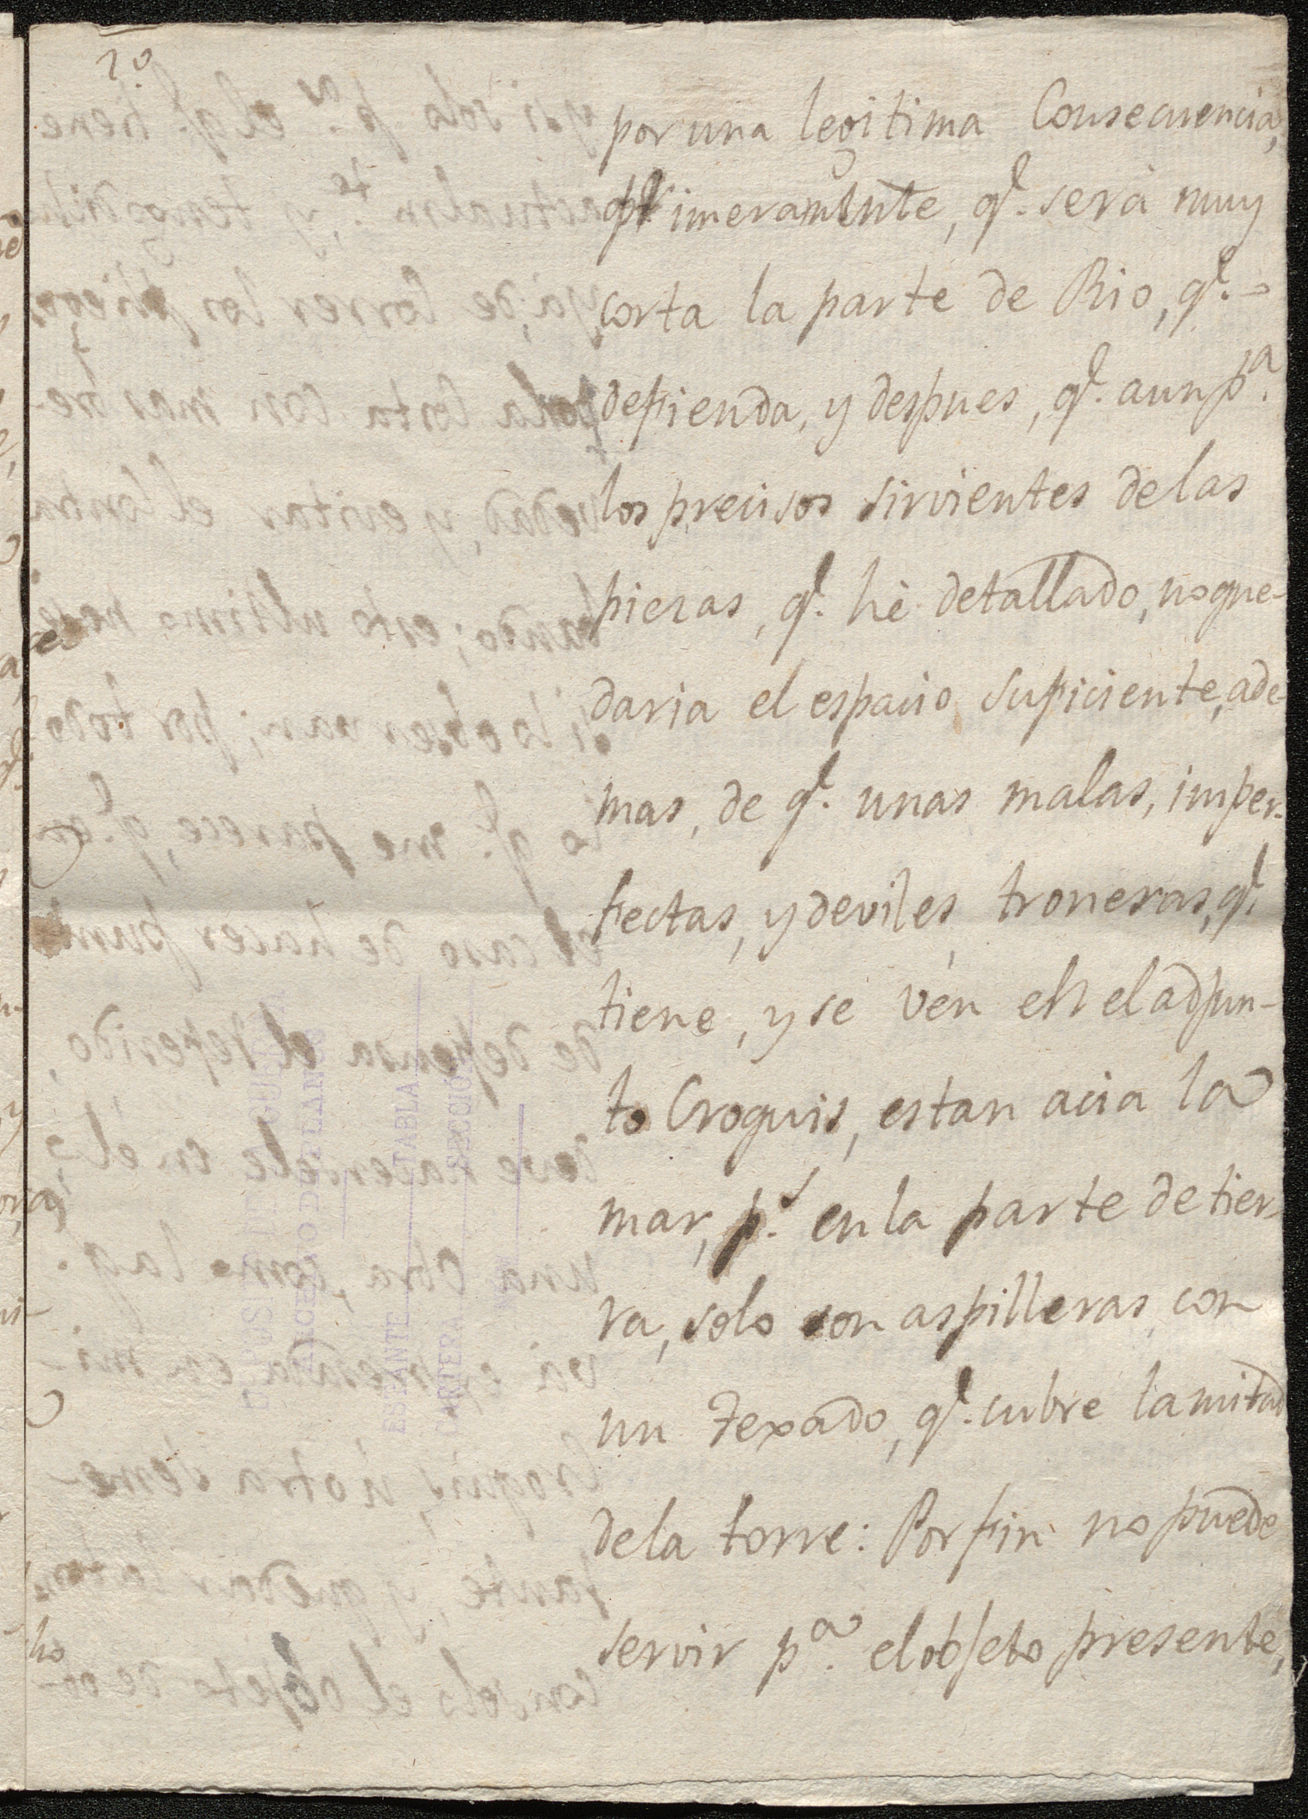 10
por una legitima Consecuencia,
primeramente, qᵉ. serà muy
corta la parte de Rio, qᵉ.
defienda, y despues, qᵉ. aun pᵃ.
los precisos sirvientes delas
piezas, qᵉ. hè detallado, no que-
daria el espacio suficiente, ade
mas, de qᵉ. unas malas, imper-
fectas, y deviles troneras, qᵉ.
tiene, y se vén en el adjun-
to Croquis, estan acia la
mar, pˢ. en la parte de tier-
ra, solo son aspilleras, con
un Texado, qᵉ. cubre la mitad
dela torre: Por fin no puede
servir pᵃ. el objeto presente,